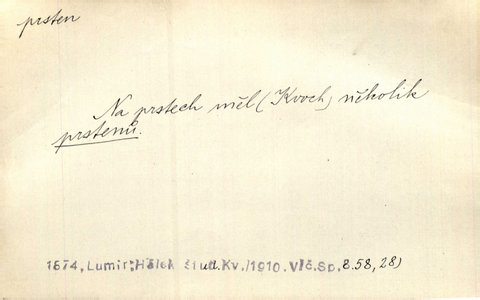 prsten
Na prstech měl (Kvoch) několik
prstenů.
1874, Lumír; Hálek štud. Kv./1910. Vlč. Sp, 8.58, 28)